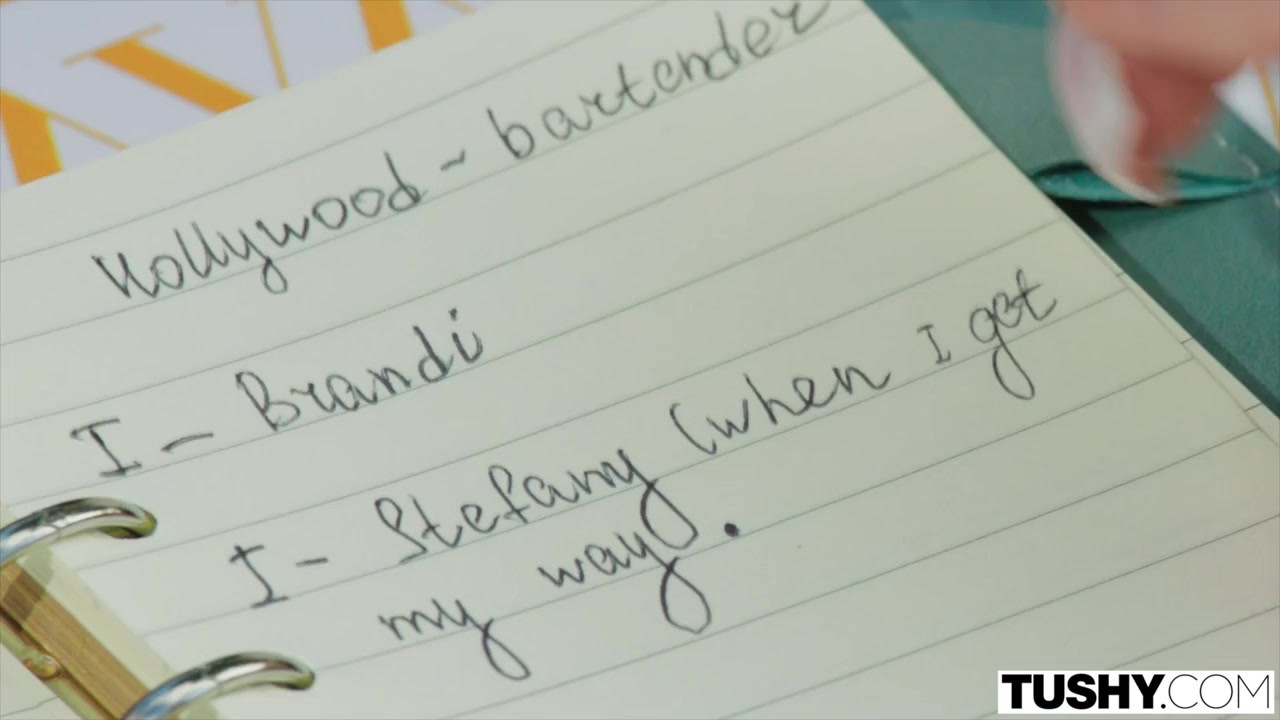 Hollywood - bartender
I - Brandi
I - Stefany (when I get
my way).
TUSHY.COM